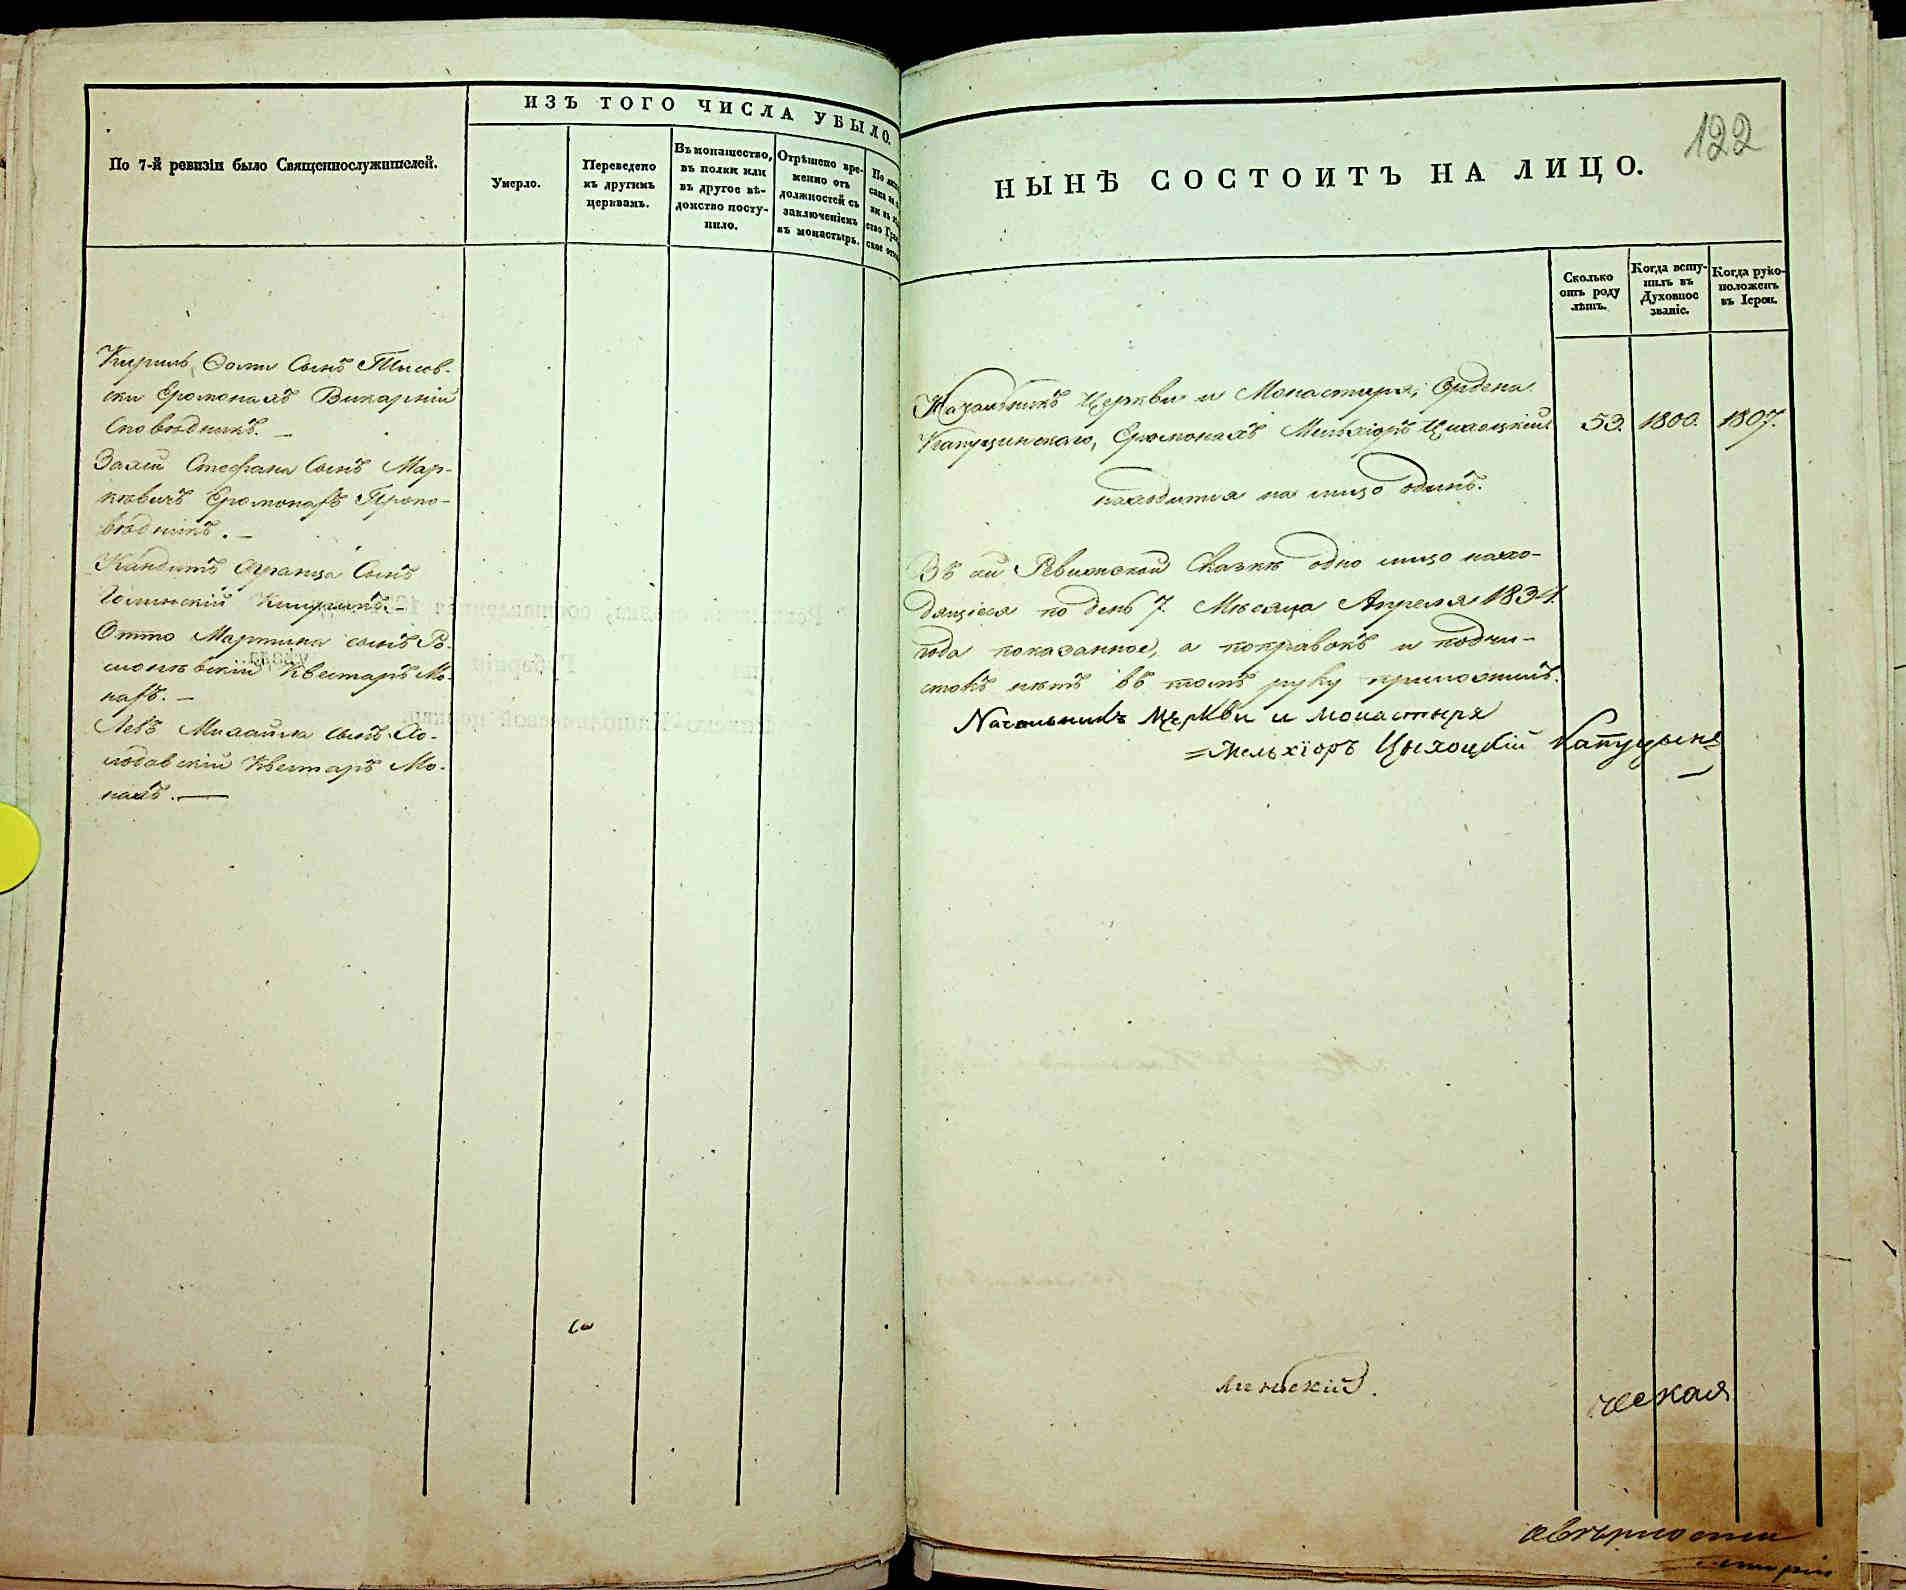 По 7-й ревизіи было Священнослужителей.
ИЗЪ ТОГО ЧИСЛА УБЫЛО.
Умерло.
Переведено
къ другимъ
церквамъ.
Въ монашество,
въ полки или
въ другое вѣ-
домство посту-
пило.
Отрѣшено вре-
менно отъ
должностей съ
заключеніемъ
въ монастырь.
Кирилъ сынъ
ски Еромонахъ Викарный
Сповѣдникъ. —
Стефана сынъ Мар-
кевичъ Еромонахъ Пропо-
вѣдникъ. —
Кандитъ Франца Сынъ
Отто Мартина сынъ Ро-
Квестаръ Мо-
нахъ. —
Левъ Михайла сынъ
Квестаръ Мо-
нахъ. —
122
НЫНѢ СОСТОИТЪ НА ЛИЦО.
Сколько
отъ роду
лѣтъ.
Когда всту-
пилъ въ
Духовное
званіе.
Когда руко-
положенъ
въ Іереи.
Начальникъ Церкви и Монастыря, Ордена
Капуцинскаго, Еромонахъ Мельхіоръ Цихоцкій 53. 1800. 1807.
находится на лицо одинъ.
Въ сей Ревизской Сказкѣ одно лицо нахо-
дящіеся по день 7. Мѣсяца Апреля 1834.
года показанное, а поправокъ и подчи-
стокъ нѣтъ въ томъ руку приложилъ.
Начальникъ Церкви и Монастыря
Мельхіоръ Цыхоцкій Капуцынъ
ческая